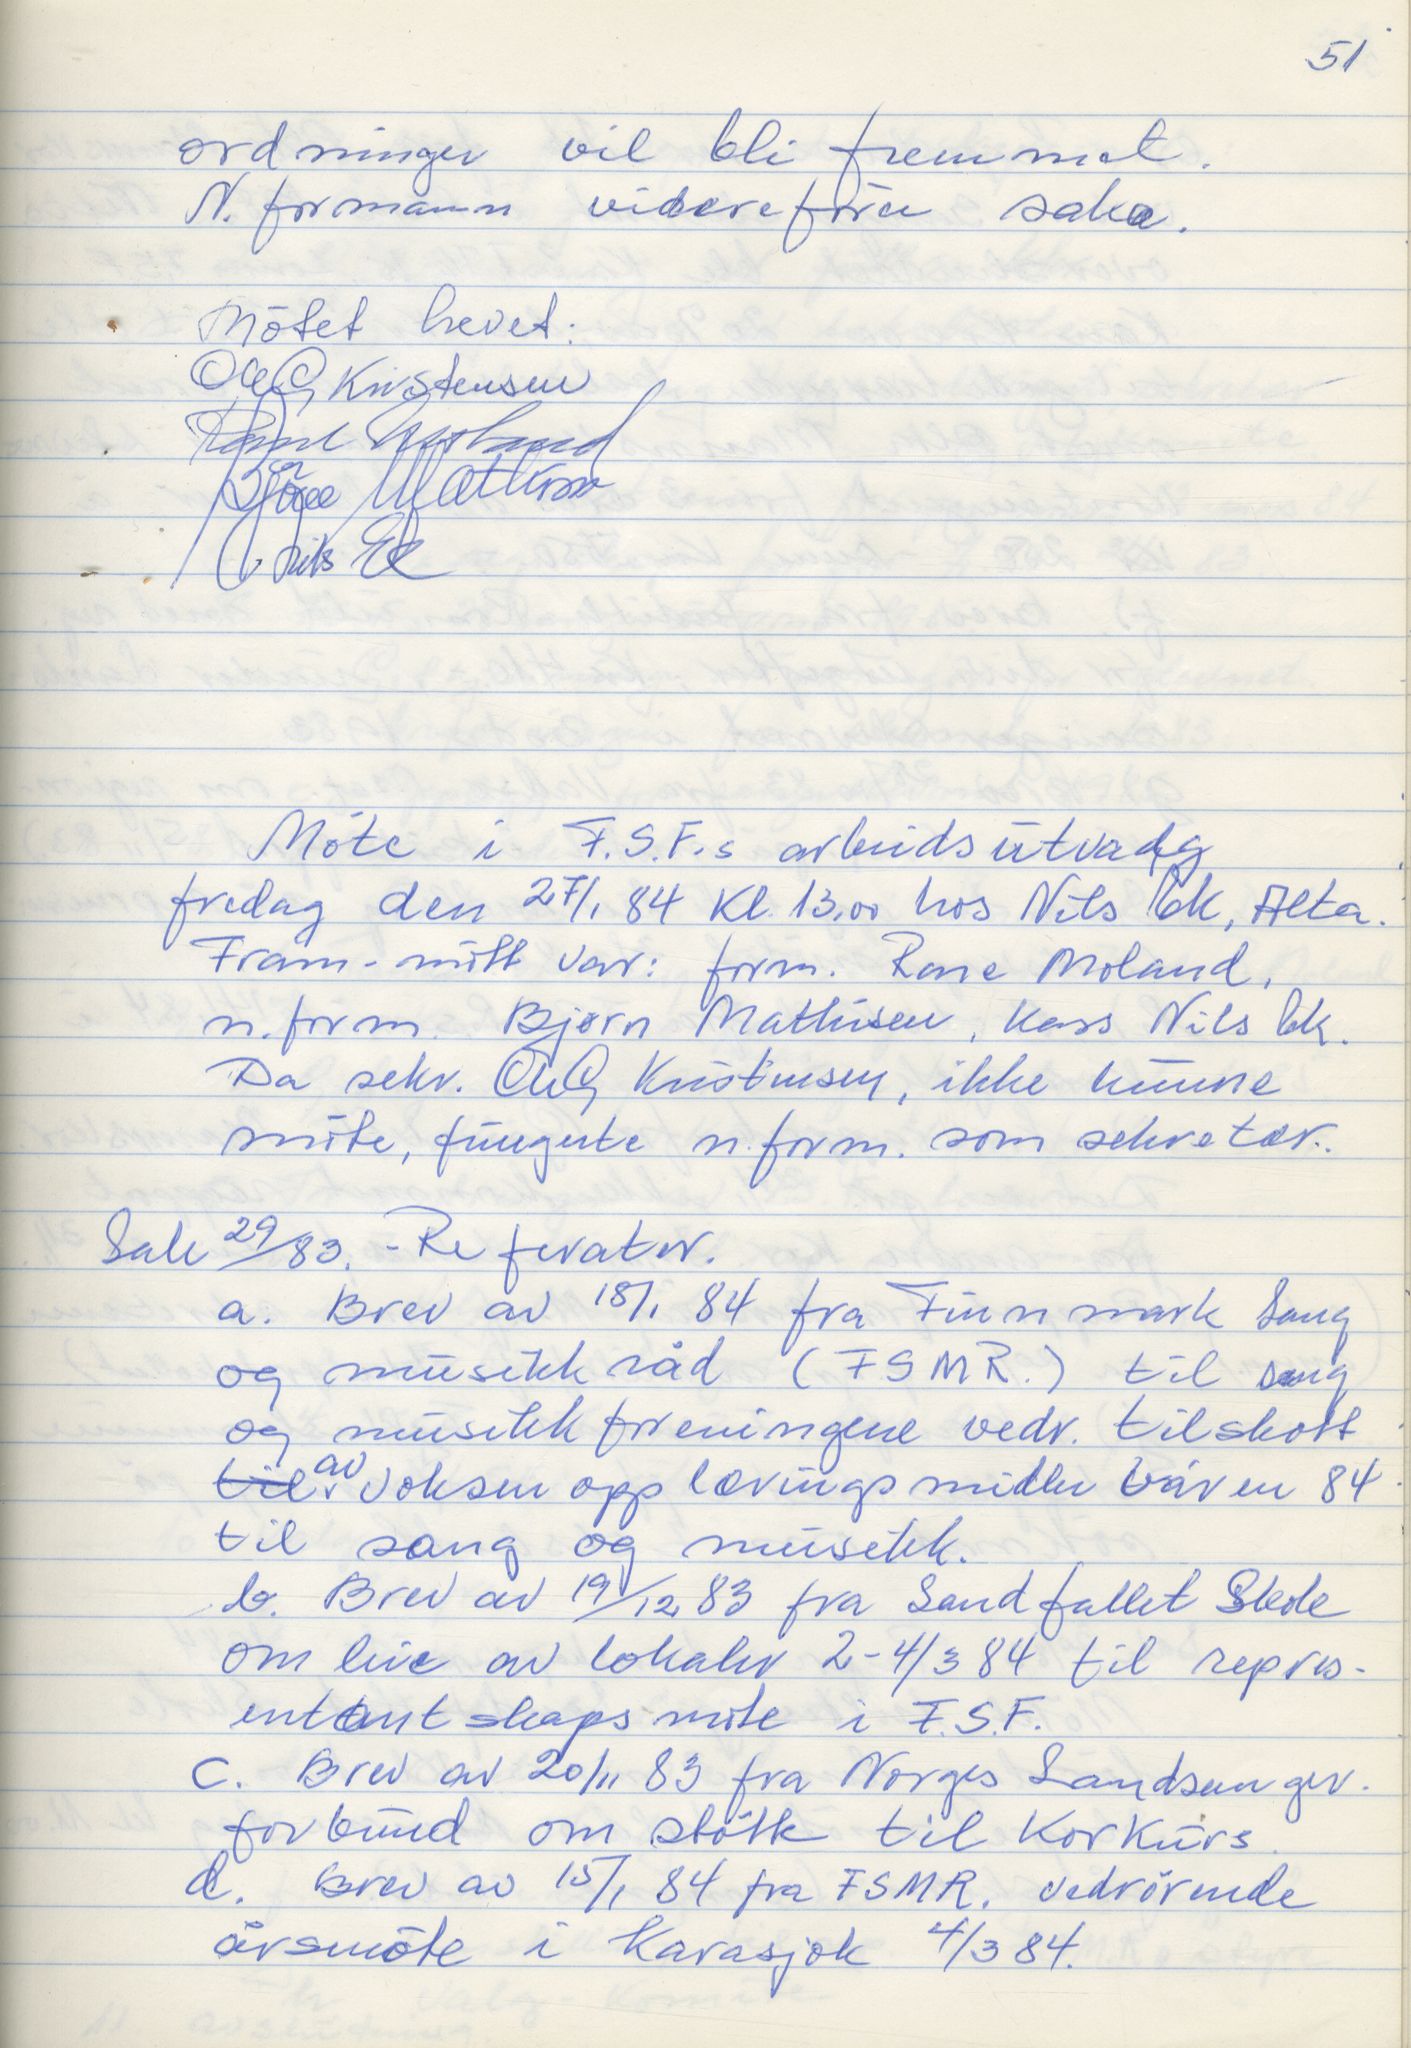 51
ordninger vil bli fremmet.
N. formann viderefører saka.
Møtet hevet:
Kristensen
Mathisen
Nils Ek
Møte i F.S.F.s arbeidsutvalg
fredag den 27/1 84 Kl. 13.00 hos Nils Ek, Alta.
Fram-møtt var: form. Rane Moland,
n.form. Bjørn Mathisen, kass Nils Ek.
Da sekr. Kristensen, ikke kunne
møte, fungerte n.form. som sekretær.
Sak 29/83. - Referater.
a. Brev av 18/1 84 fra Finnmark Sang
og musikkråd (FSMR.) til sang
og musikkforeningene vedr. tilskott
til av voksenopplæringsmidler våren 84
til sang og musikk.
b. Brev av 19/12 83 fra Sandfallet Skole
om leie av lokaler 2-4/3 84 til repres-
entantskapsmøte i F.S.F.
c. Brev av 20/11 83 fra Norges Landsanger-
forbund om støtte til Korkurs.
d. Brev av 15/1 84 fra FSMR. vedrørende
årsmøte i Karasjok 4/3 84.